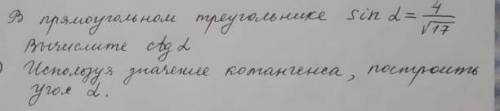 В прямоугольном треугольнике sin α = 4/√17
Вычислите ctg α
) Используя значение котангенса, построить
угол α.